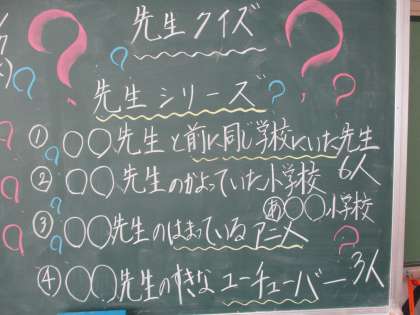 先生クイズ
先生シリーズ
① ○○先生と前に同じ学校にいた先生
6人
② ○○先生のかよっていた小学校
あ○○小学校
③ ○○先生のはまっているアニメ
④ ○○先生のすきなユーチューバー 3人